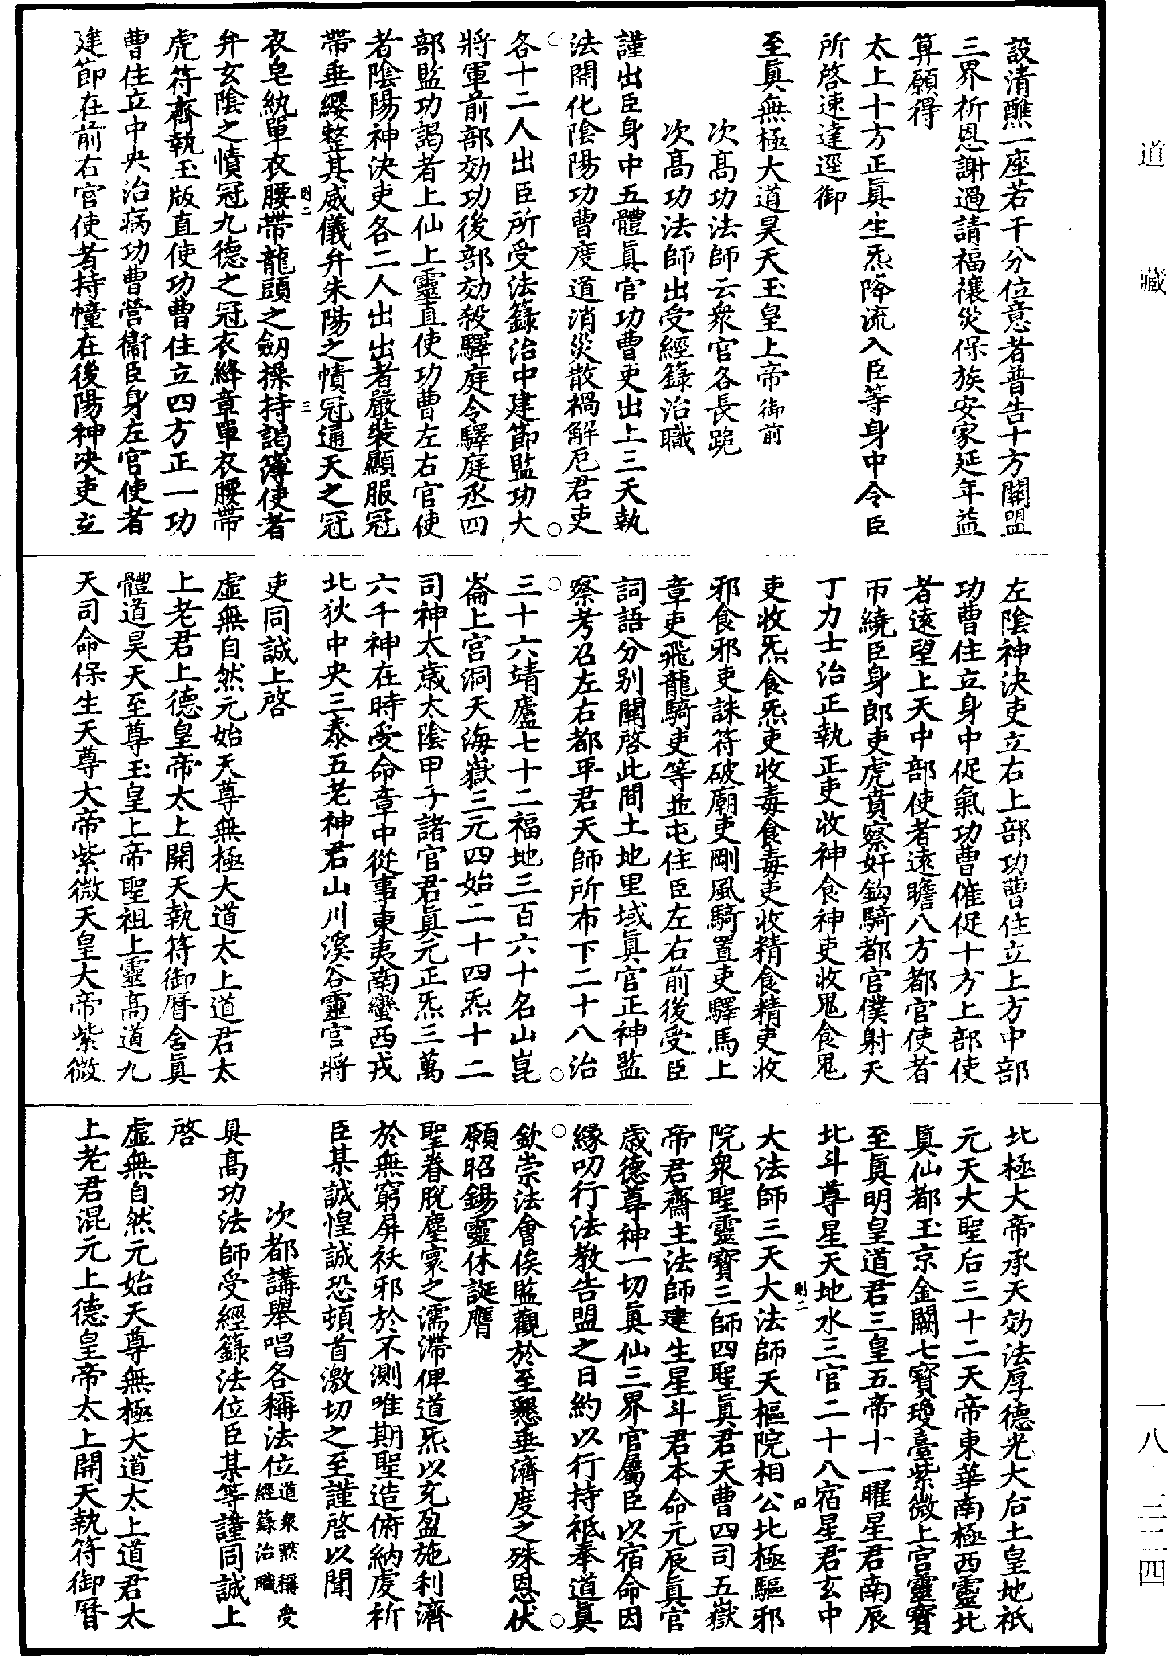 道藏
設清醮一座若干分位意者普告十方關盟
三界祈恩謝過請福禳災保族安家延年益
算願得
太上十方正眞生炁降流入臣等身中令臣
所啓速達逕御
至眞無極大道昊天玉皇上帝御前
次高功法師云衆官各長跪
次高功法師出受經籙治職
謹出臣身中五體眞官功曹吏出上三天執
法開化陰陽功曹度道消災散禍解厄君吏
各十二人出臣所受法籙治中建節監功大
將軍前部効功後部効殺驛庭令驛庭丞四
部監功謁者上仙上靈直使功曹左右官使
者陰陽神決吏各二人出出者嚴裝顯服冠
帶垂纓整其威儀弁朱陽之幘冠通天之冠
則二
三
衣皂紈單衣腰帶龍頭之劒操持謁簿使者
弁玄陰之幘冠九德之冠衣絳章單衣腰帶
虎符齋執玉版直使功曹住立四方正一功
曹住立中央治病功曹營衞臣身左官使者
建節在前右官使者持幢在後陽神決吏立
左陰神決吏立右上部功曹住立上方中部
功曹住立身中促氣功曹催促十方上部使
者遠望上天中部使者遠瞻八方都官使者
帀繞臣身郎吏虎賁察奸鈎騎都官僕射天
丁力士治正執正吏收神食神吏收鬼食鬼
吏收炁食炁吏收毒食毒吏收精食精吏收
邪食邪吏誅符破廟吏剛風騎置吏驛馬上
章吏飛龍騎吏等並屯住臣左右前後受臣
詞語分别關啓此間土地里域眞官正神監
察考召左右都平君天師所布下二十八治
三十六靖廬七十二福地三百六十名山崑
崙上宮洞天海嶽三元四始二十四炁十二
司神太歲太陰甲子諸官君眞元正炁三萬
六千神在時受命章中從事東夷南蠻西戎
北狄中央三泰五老神君山川溪谷靈官將
吏同誠上啓
虛無自然元始天尊無極大道太上道君太
上老君上德皇帝太上開天執符御曆含眞
體道昊天至尊玉皇上帝聖祖上靈高道九
天司命保生天尊大帝紫微天皇大帝紫微
北極大帝承天効法厚德光大后土皇地祇
元天大聖后三十二天帝東華南極西靈北
眞仙都玉京金闕七寳瓊臺紫微上宮靈寳
至眞明皇道君三皇五帝十一曜星君南辰
北斗尊星天地水三官二十八宿星君玄中
則二
四
大法師三天大法師天樞院相公北極驅邪
院衆聖靈寳三師四聖眞君天曹四司五嶽
帝君齋主法師建生星斗君本命元辰眞官
歲德尊神一切眞仙三界官屬臣以宿命因
緣叨行法教告盟之日約以行持祇奉道眞
欽崇法會俟監觀於至懇垂濟度之殊恩伏
願昭錫靈休誕膺
聖眷脫塵寰之濡滯俾道炁以充盈施利濟
於無窮屏袄邪於不測唯期聖造俯納虔祈
臣某誠惶誠恐頓首激切之至謹啓以聞
次都講舉唱各稱法位道衆黙稱受經籙治職
具高功法師受經籙法位臣某等謹同誠上
啓
虛無自然元始天尊無極大道太上道君太
上老君混元上德皇帝太上開天執符御曆
一八·三二四